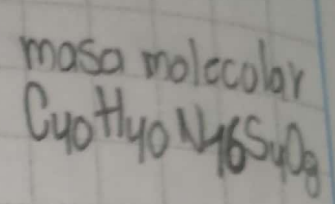 masa molecolar
C40H40N46S4O8